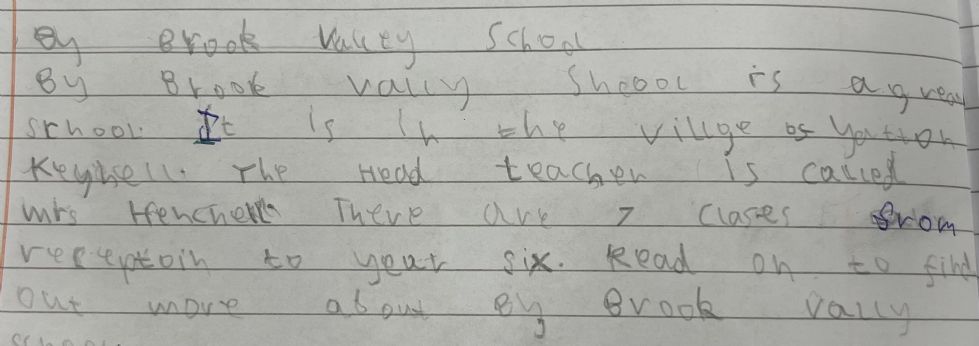 By Brook Valley School
By Brook Vally Shcool is a great
school. It is in the villge of Yatton
Keynell. The Head teacher is called
mrs There are 7 clases from
receptoin to year six. Read on to find
out more about By Brook Vally
school